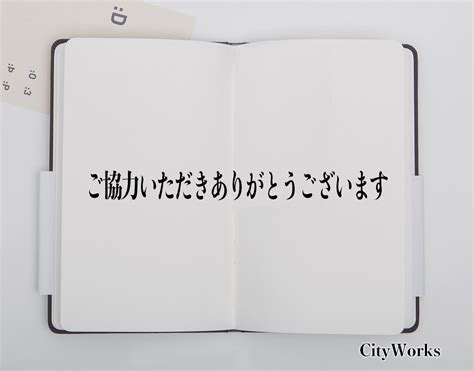 :D
:O :3
:P :P
ご協力いただきありがとうございます
CityWorks